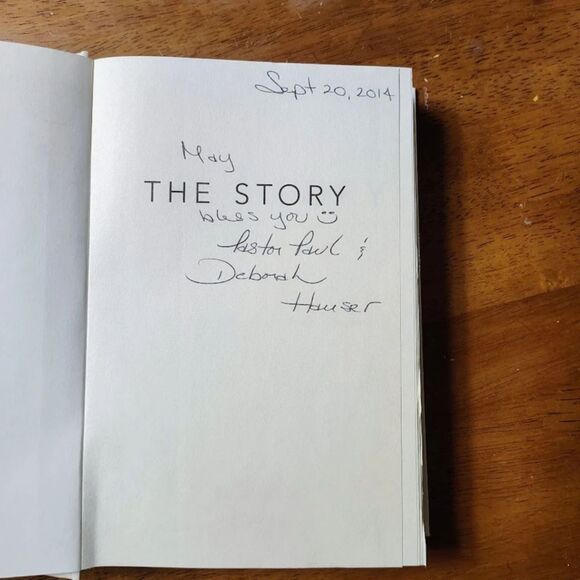 Sept 20, 2014
May
THE STORY
bless you
Pastor Paul &
Deborah
Hauser